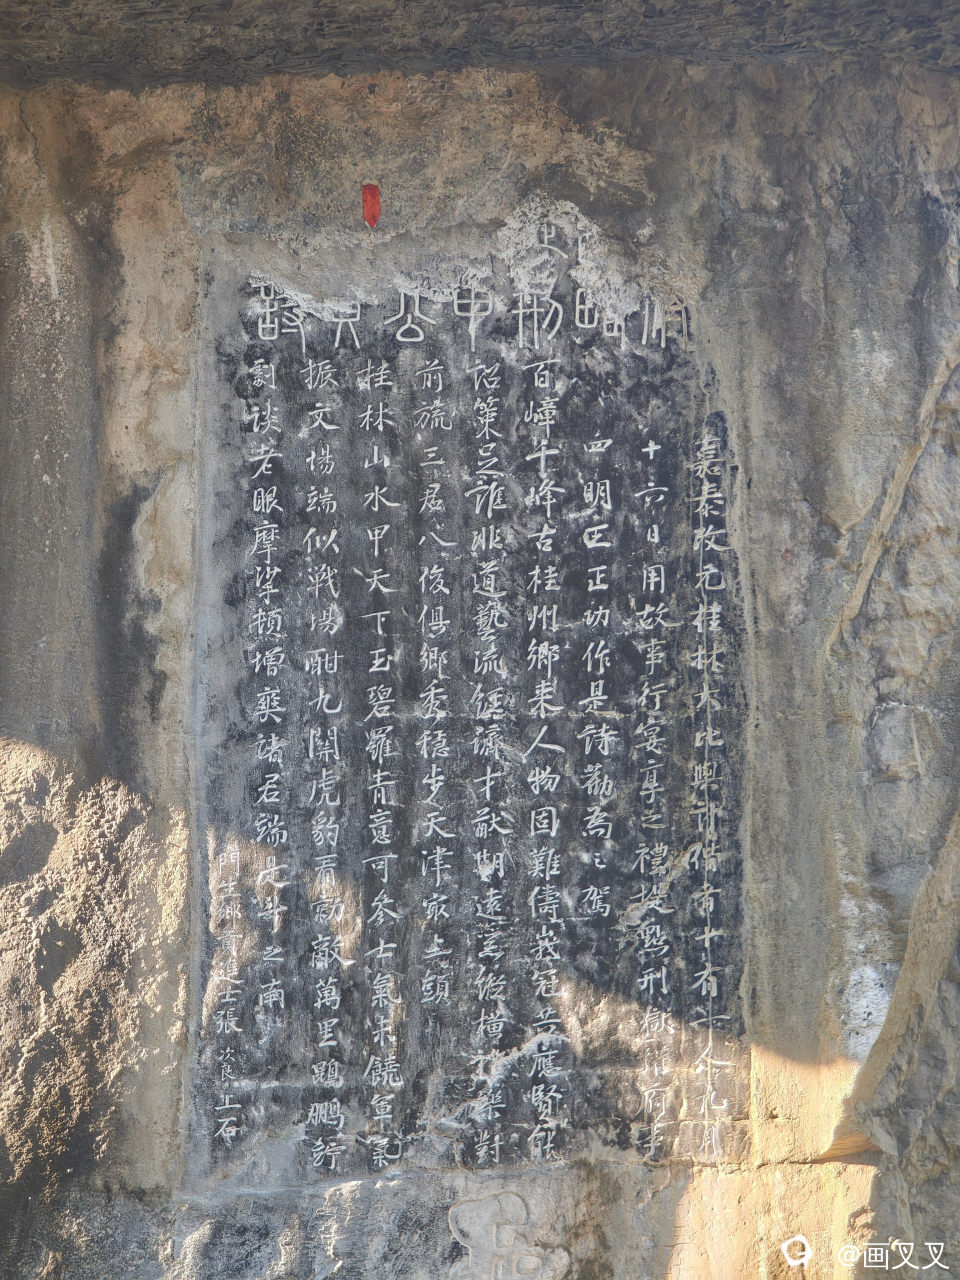 公詩
嘉泰改元桂林大比與計偕者十有一人九月
十六日用故事行宴享之禮提點刑獄權府事
四明王正功作是詩勸為之駕
百嶂千峰古桂州鄉來人物固難儔峩冠共應賢能
詔策足誰非道藝流經濟才猷期遠業縱橫禮樂對
前旒三君八俊俱鄉秀穩步天津最上頭
桂林山水甲天下玉碧羅青意可參士氣未饒軍氣
振文場端似戰場酣九關虎豹看勍敵萬里鵾鵬佇
劇談老眼摩挲頓增爽諸君端是斗之南
門生鄉貢進士張次良上石
@画叉叉